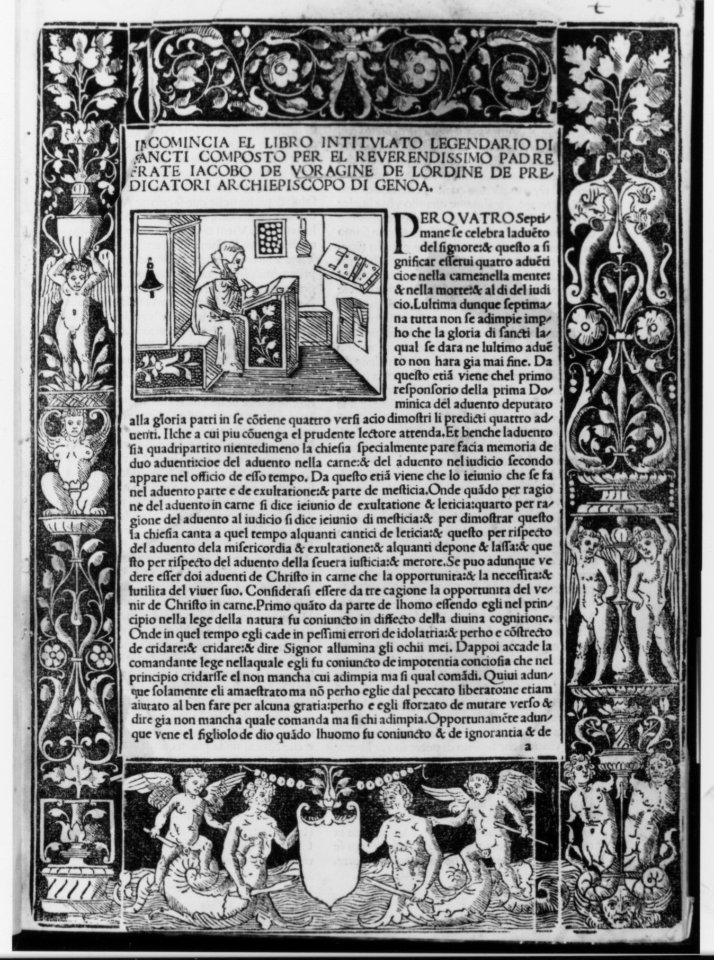 INCOMINCIA EL LIBRO INTITVLATO LEGENDARIO DI
SANCTI COMPOSTO PER EL REVERENDISSIMO PADRE
FRATE IACOBO DE VORAGINE DE LORDINE DE PRE/
DICATORI ARCHIEPISCOPO DI GENOA.
PER QVATRO Septi/
mane se celebra laduẽto
del signore:& questo a si
gnificar esserui quatro aduẽti
cioe nella carne:nella mente:
& nella morte:& al di del iudi
cio.Lultima dunque septima/
na tutta non se adimpie imp/
ho che la gloria di sancti la/
qual se dara ne lultimo aduẽ
to non hara gia mai fine. Da
questo etiã viene chel primo
responsorio della prima Do/
minica del aduento deputato
alla gloria patri in se cõtiene quattro versi acio dimostri li predicti quattro ad/
uenti. Ilche a cui piu cõuenga el prudente lectore attenda.Et benche laduento
sia quadripartito nientedimeno la chiesia specialmente pare facia memoria de
duo aduenti:cioe del aduento nella carne:& del aduento nel iudicio secondo
appare nel officio de esso tempo. Da questo etiã viene che lo ieiunio che se fa
nel aduento parte e de exultatione:& parte de mesticia.Onde quãdo per ragio
ne del aduento in carne si dice ieiunio de exultatione & leticia:quarto per ra/
gione del aduento al iudicio si dice ieiunio di mesticia:& per dimostrar questo
la chiesia canta a quel tempo alquanti cantici de leticia:& questo per rispecto
del aduento dela misericordia & exultatione:& alquanti depone & lassa:& que
sto per rispecto del aduento della seuera iusticia:& merore.Se puo adunque ve
dere esser doi aduenti de Christo in carne che la opportunita:& la necessita:&
lutilita del viuer suo. Considerasi essere da tre cagione la opportunita del ve/
nir de Christo in carne.Primo quãto da parte de lhomo essendo egli nel prin/
cipio nella lege della natura fu coniuncto in diffecto della diuina cognitione.
Onde in quel tempo egli cade in pessimi errori de idolatria:& perho e cõstrecto
de cridare:& cridare:& dire Signor allumina gli ochii mei. Dappoi accade la
comandante lege nellaquale egli fu coniuncto de impotentia conciosia che nel
principio cridarsse el non mancha cui adimpia ma si qual comãdi. Quiui adun/
que solamente eli amaestrato ma nõ perho eglie dal peccato liberato:ne etiam
aiutato al ben fare per alcuna gratia:perho e egli sforzato de mutare verso &
dire gia non mancha quale comanda ma si chi adimpia.Opportunamẽte adun/
que vene el figliolo de dio quãdo lhuomo fu coniuncto & de ignorantia & de
a